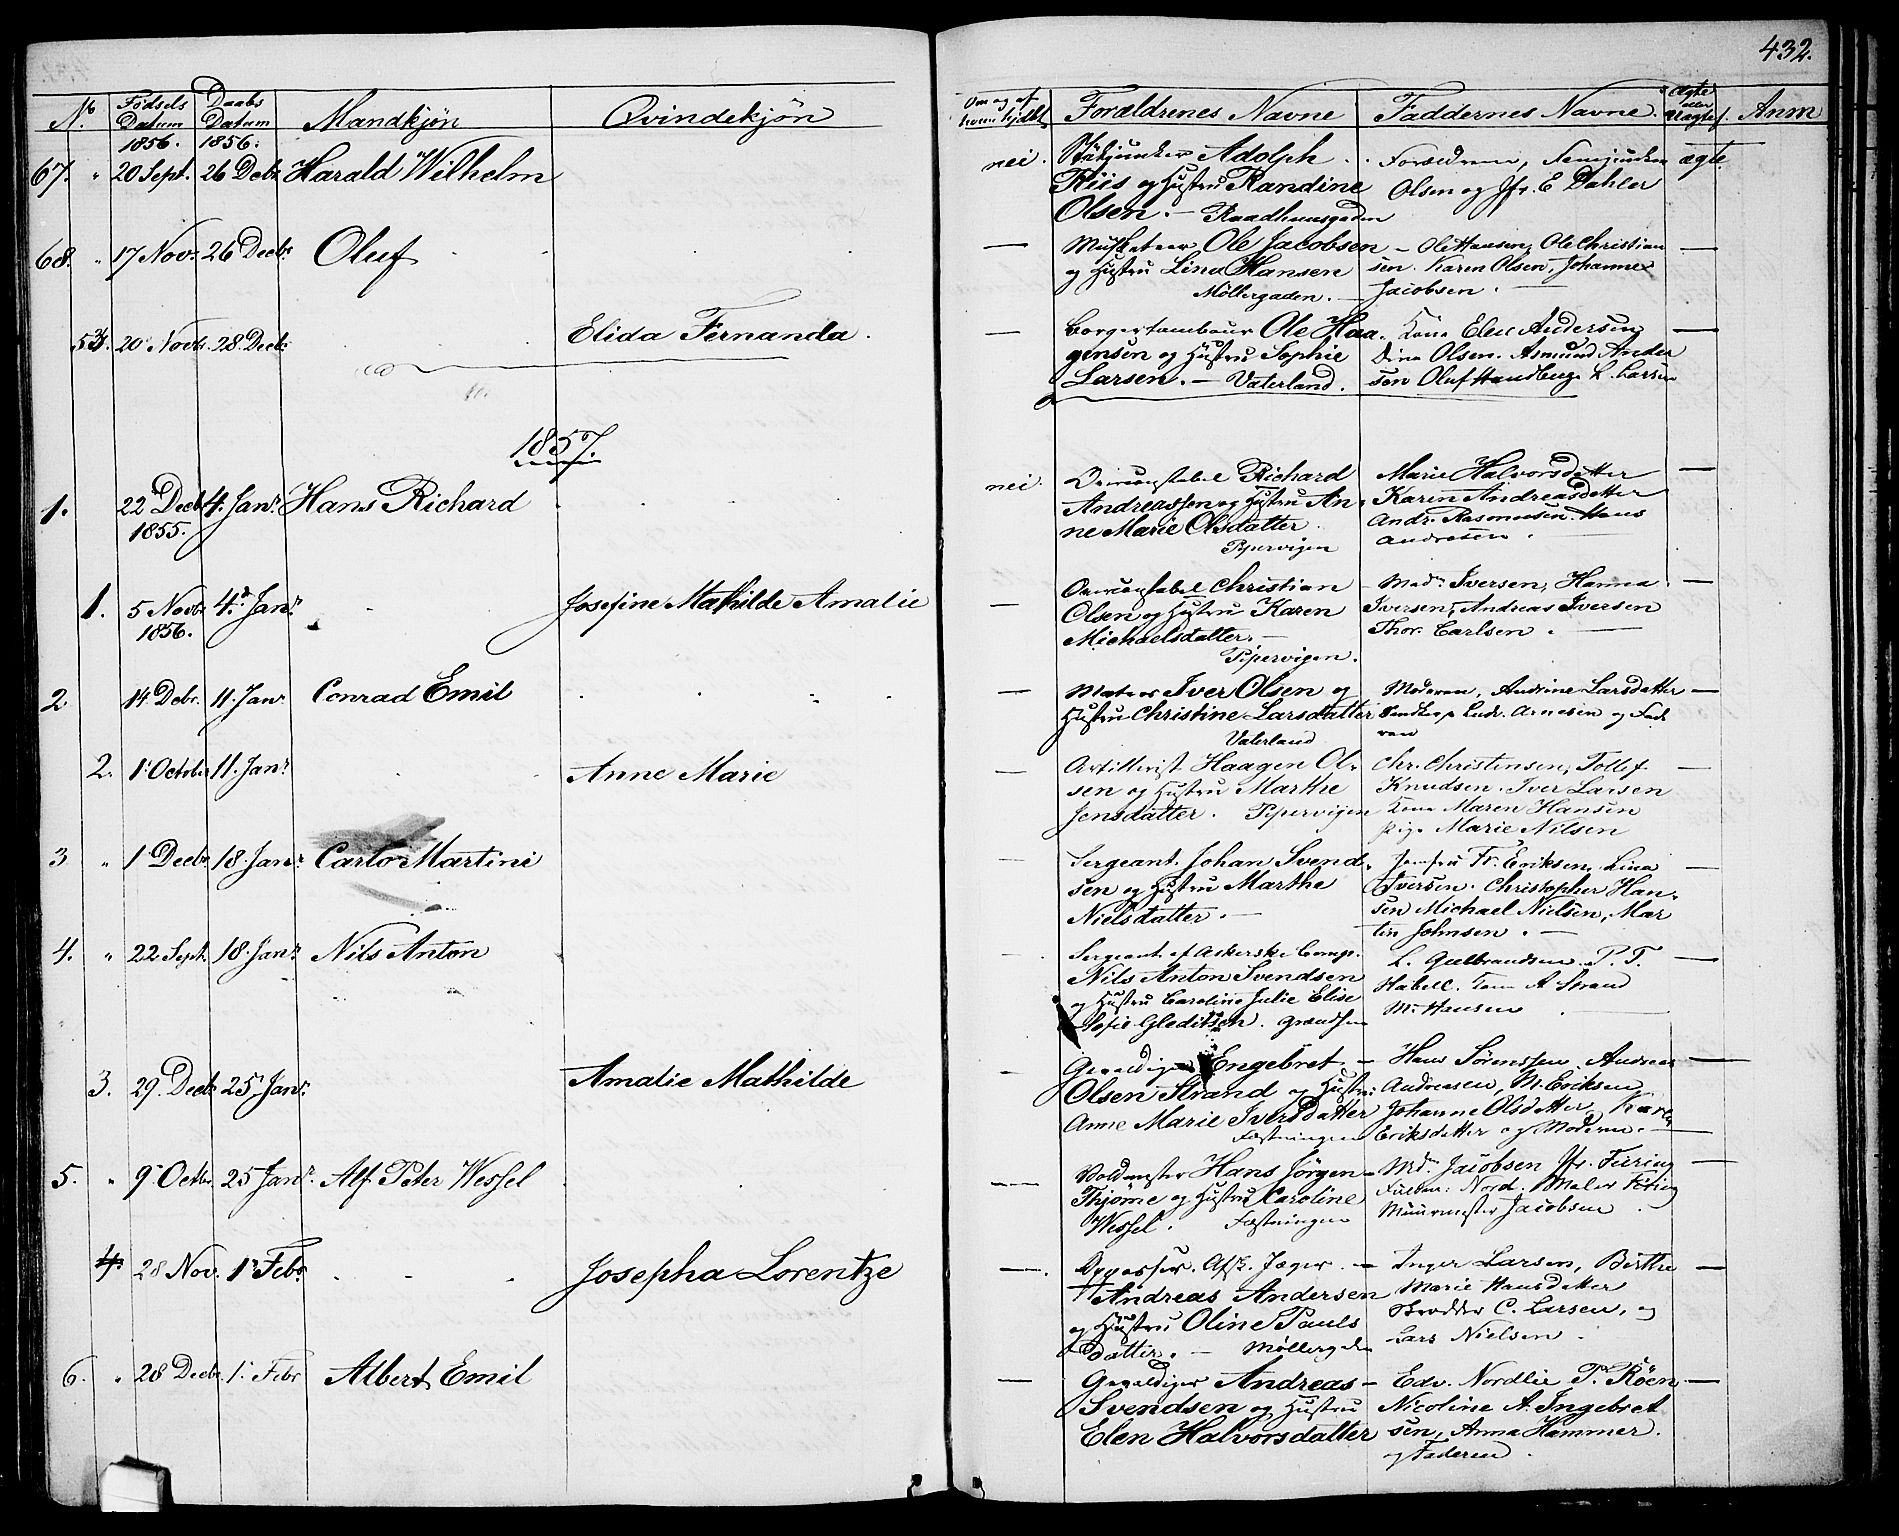 432.
No. Fødsels Datum 1856. Daabs Datum 1856. Mandkjøn Qvindekjøn
Om og af hvem hjdbt Forældrenes Navne Faddernes Navne Ægte eller Uægte Anm
67. " 20 Sept. 26 Decbr Harald Wilhelm
nei. Adolph
Riis og Hustru Randine
Olsen. — Raadhuusgaden
Forældrene,
Olsen og Jfr. E Dahler
ægte.
68. " 17 Nov. 26 Decbr. Oluf
— Musketeer Ole Jacobsen
og Hustru Lina Hansen
Möllergaden. —
— Ole Hansen, Ole Christian
sen. Karen Olsen, Johanne
Jacobsen. —
—
53. 20 Novbr. 28 Decbr. Elida Fernanda.
— Borgertambour Ole Haa
gensen og Hustru Sophie
Larsen. — Vaterland.
Kone Elen Andersen
Dina Olsen. Asmund Ander
sen Oluf Handberg L. Larsen
—
1857.
1. 22 Decbr 1855. 4. Janr. Hans Richard
nei. Overconstabel Richard
Andreassen og Hustru An
ne Marie Olsdatter.
Pipervigen
Marie Halvorsdatter
Karen Andreasdatter
Andr. Rasmussen. Hans
Andresen.
—
1. 5 Novbr 1856. 4. Janr. Josefine Mathilde Amalie
— Overconstabel Christian
Olsen og Hustru Karen
Michaelsdatter. —
Pipervigen.
Mad. Iversen, Hanna
Iversen, Andreas Iversen
Thor. Carlsen. —
—
2 14 Decbr. 11. Janr Conrad Emil
— Iver Olsen og
Hustru Christine Larsdatter
Vaterland
Moderen, Andrine Larsdatter
Ludv. Arnesen og Fad
ren
—
2. 1. October 11. Janr. Anne Marie
— Artillerist Haagen Ol
sen og Hustru Marthe
Jensdatter. Pipervigen
Chr. Christensen, Tollef
Knudsen. Iver Larsen
Kone Maren Hansen
Pige Marie Nilsen
—
3 " 1 Decbr 18. Janr. Carlo Martini
— Sergeant. Johan Svend
sen og Hustru Marthe
Nielsdatter. —
Jomfru Fr. Eriksen, Lina
Iversen. Christopher Han
sen Michael Nielsen, Mar
tin Johnsen. —
—
4. " 22 Sept. 18. Janr. Nils Anton
— Sergeant af Askerske Comp.
Nils Anton Svendsen
og Hustru Caroline Julie Elise
Sofie Gleditsch. Grændsen
L. Gulbrandsen. P. T.
Habell. A Strand
M. Hansen
—
3. 29. Decbr 25 Janr. Amalie Mathilde
— Gevaldiger Engebret —
Olsen Strand og Hustru
Anne Marie Iversdatter
Fæstningen
Hans Sørenssen, Andreas
Andreasen, M. Eriksen
Johanne Olsdatter, Karen
Eriksdatter og Moderen. —
—
5. " 9 Octbr. 25 Janr. Alf Peter Wessel
— Voldmester Hans Jörgen
Thjöme og Hustru Caroline
Wessel. Fæstningen
Md. Jacobsen Jfr. Fiiring
Nord. Maler Fiiring
Muurmester Jacobsen.
—
4 28 Nov. 1 Febr Josepha Lorentze
— Oppasser. Afsk. Jæger. —
Andreas Andersen
og Hustru Oline Pauls
datter. — Möllergaden
Inger Larsen, Birthe
Marie Hansdatter
Skredder C. Larsen, og
Lars Nielsen.
—
6. " 28 Decbr. 1. Febr Albert Emil
— Gevaldiger Andreas —
Svendsen og Hustru
Elen Halvorsdatter
Edv. Nordlie P. Röen
Nicoline A. Ingebret
sen, Anna Hammer.
og Faderen.
—